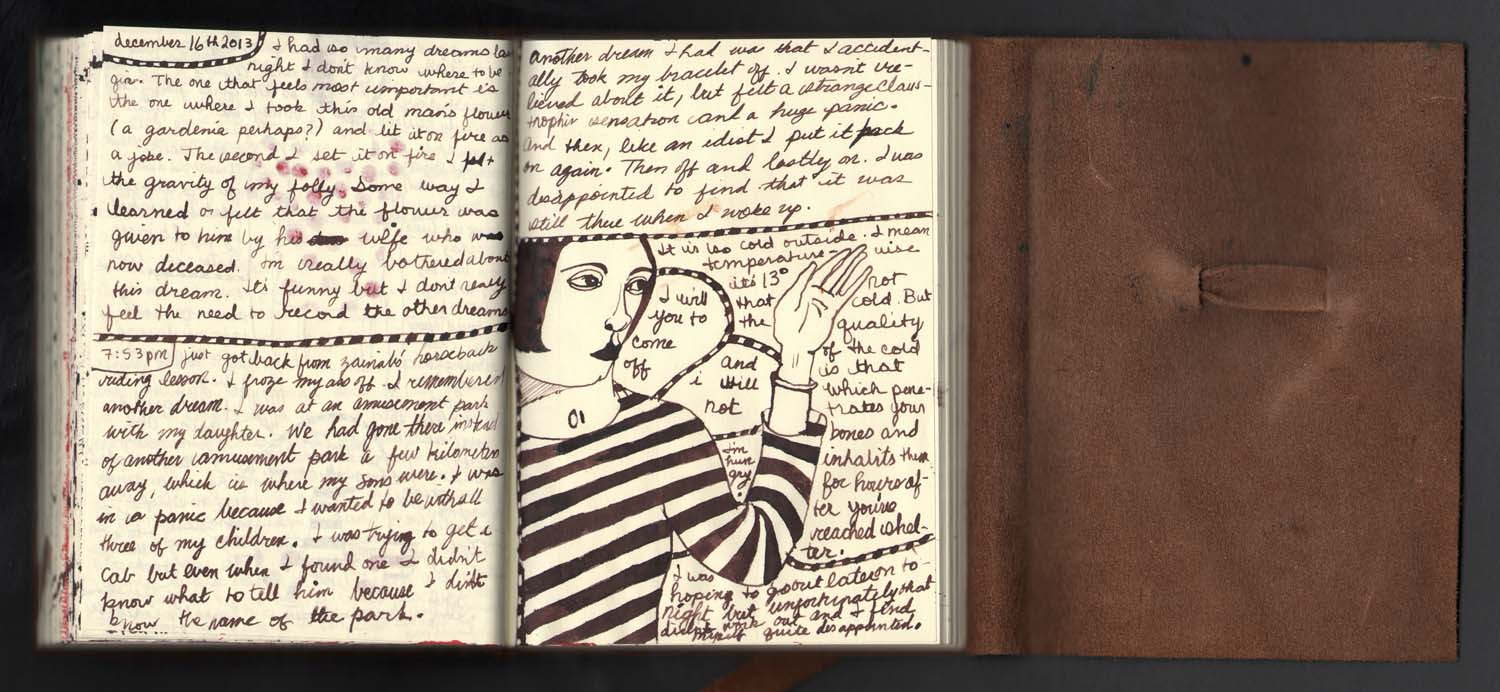 december 16th 2013
I had so many dreams la
night I don't know where to be
gin. The one that feels most important is
the one where I took this old man's flower
(a gardenia perhaps?) and lit it on fire as
a joke. The second I set it on fire I felt
the gravity of my folly. Some way I
learned or felt that the flower was
given to him by his wife who was
now deceased. Im really bothered about
this dream. It's funny but I don't really
feel the need to record the other dreams
7:53pm
just got back from zainab's horseback
riding lesson. I froze my ass off. I remembered
another dream. I was at an amusement park
with my daughter. We had gone there instead
of another amusement park a few kilometers
away, which is where my sons were. I was
in a panic because I wanted to be with all
three of my children. I was trying to get a
cab but even when I found one I didn't
know what to tell him because I didn't
know the name of the park.
another dream I had was that I accident-
ally took my bracelet off. I wasn't re-
lieved about it, but felt a strange claus-
trophic sensation and a huge panic.
And then, like an idiot I put it back
on again. Then off and lastly on. I was
disappointed to find that it was
still there when I woke up.
It is so cold outside. I mean
temperature-wise
it's 13° not
that cold. But
the quality
of the cold
is that
which pene-
trates your
bones and
inhabits them
for hours af-
ter you've
reached shel-
ter.
I will
you to
come
off
and
i will
not
I'm
hun
gry
01
I was
hoping to go out later on to-
night but unfortunately that
didn't work out and I find
myself quite disappointed.